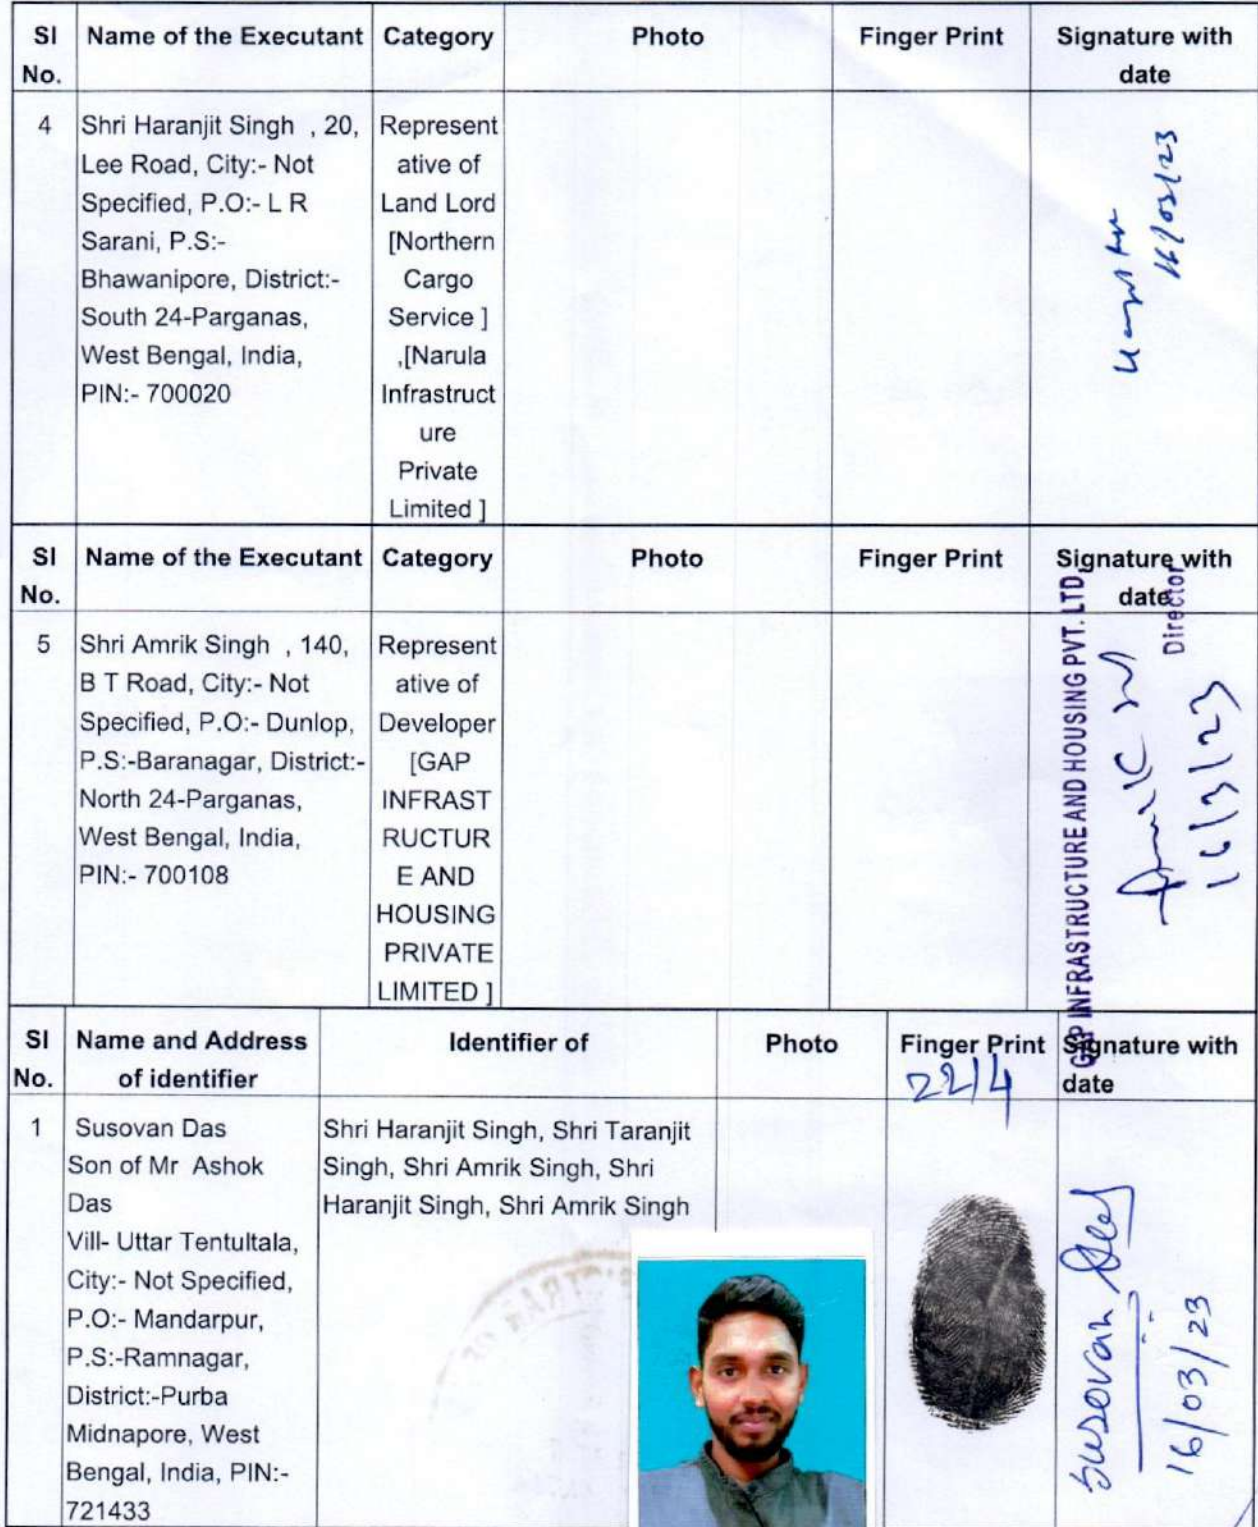 Sl No. Name of the Executant Category Photo Finger Print Signature with date
4
Shri Haranjit Singh , 20,
Lee Road, City:- Not
Specified, P.O:- L R
Sarani, P.S:-
Bhawanipore, District:-
South 24-Parganas,
West Bengal, India,
PIN:- 700020
Represent
ative of
Land Lord
[Northern
Cargo
Service ]
,[Narula
Infrastruct
ure
Private
Limited ]
16/03/23
Sl No. Name of the Executant Category Photo Finger Print Signature with date
5
Shri Amrik Singh , 140,
B T Road, City:- Not
Specified, P.O:- Dunlop,
P.S:-Baranagar, District:-
North 24-Parganas,
West Bengal, India,
PIN:- 700108
Represent
ative of
Developer
[GAP
INFRAST
RUCTUR
E AND
HOUSING
PRIVATE
LIMITED ]
GAP INFRASTRUCTURE AND HOUSING PVT. LTD.
Director
16/3/23
Sl No. Name and Address of identifier Identifier of Photo Finger Print Signature with date
1
Susovan Das
Son of Mr Ashok
Das
Vill- Uttar Tentultala,
City:- Not Specified,
P.O:- Mandarpur,
P.S:-Ramnagar,
District:-Purba
Midnapore, West
Bengal, India, PIN:-
721433
Shri Haranjit Singh, Shri Taranjit
Singh, Shri Amrik Singh, Shri
Haranjit Singh, Shri Amrik Singh
22/4
Susovan Das
16/03/23